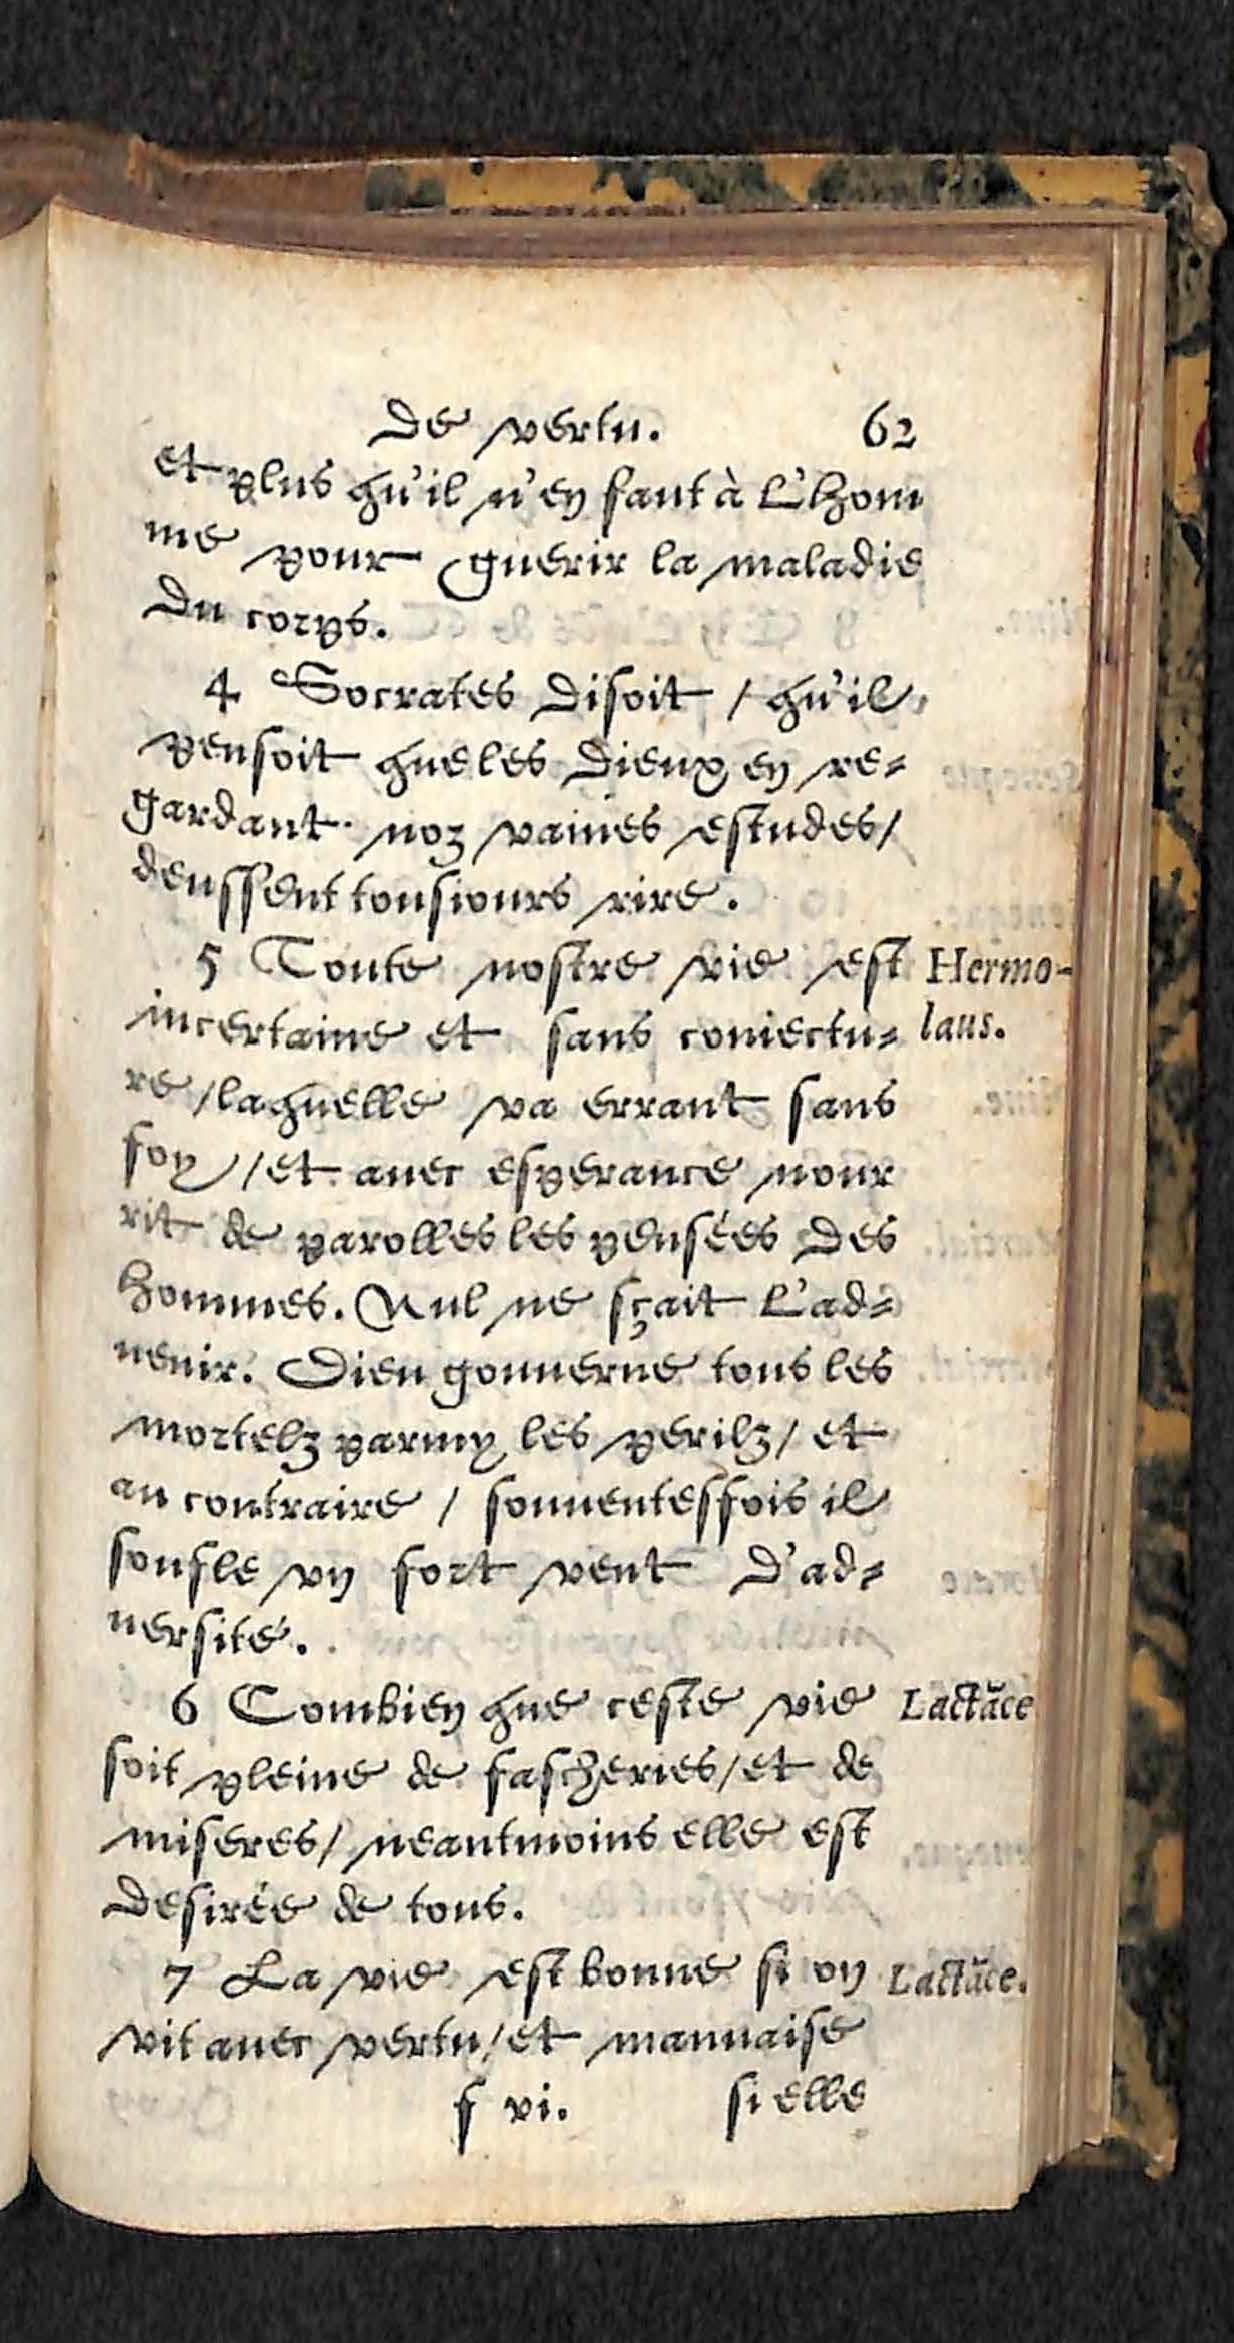 De vertu. 62
et plus qu'il n'en faut à L'hom
me pour guerir la maladie
du corps.
4 Socrates disoit / qu'il
pensoit que les dieux en re=
gardant noz vaines estudes /
deussent tousiours rire.
5 Toute nostre vie est Hermo-
incertaine et sans coniectu= laus.
re / laquelle va errant sans
foy / et avec esperance nour
rit de parolles les pensées des
hommes. Nul ne sçait L'ad=
uenir. Dieu gouuerne tous les
mortelz parmy les perilz / et
au contraire / souuentesfois il
soufle vn fort vent D'ad=
uersité.
6 Combien que ceste vie Lactãce
soit pleine de fascheries / et de
miseres / neantmoins elle est
desirée de tous.
7 La vie est bonne si on Lactãce.
vit auec vertu / et mauuaise
f vi. si elle